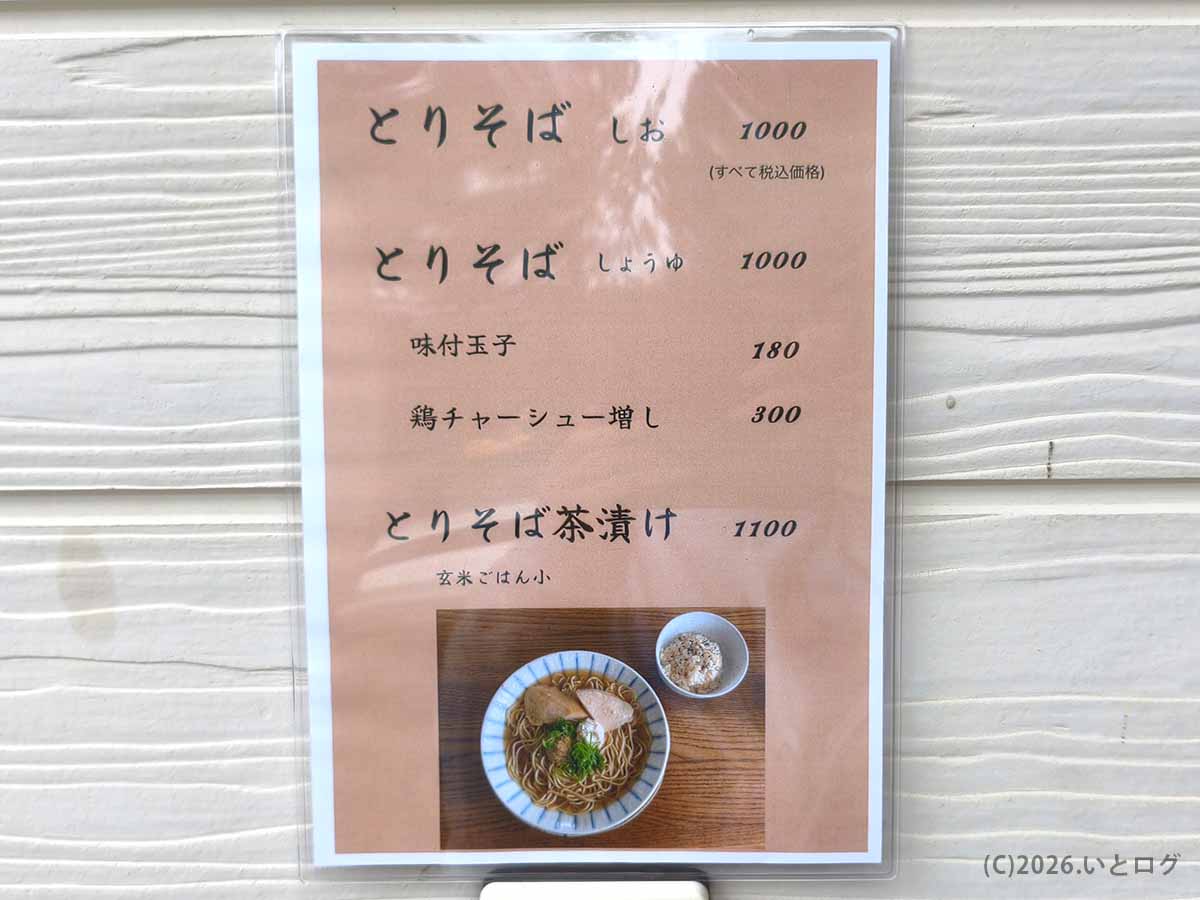 とりそば しお 1000
(すべて税込価格)
とりそば しょうゆ 1000
味付玉子 180
鶏チャーシュー増し 300
とりそば茶漬け 1100
玄米ごはん小
(C)2026.いとログ